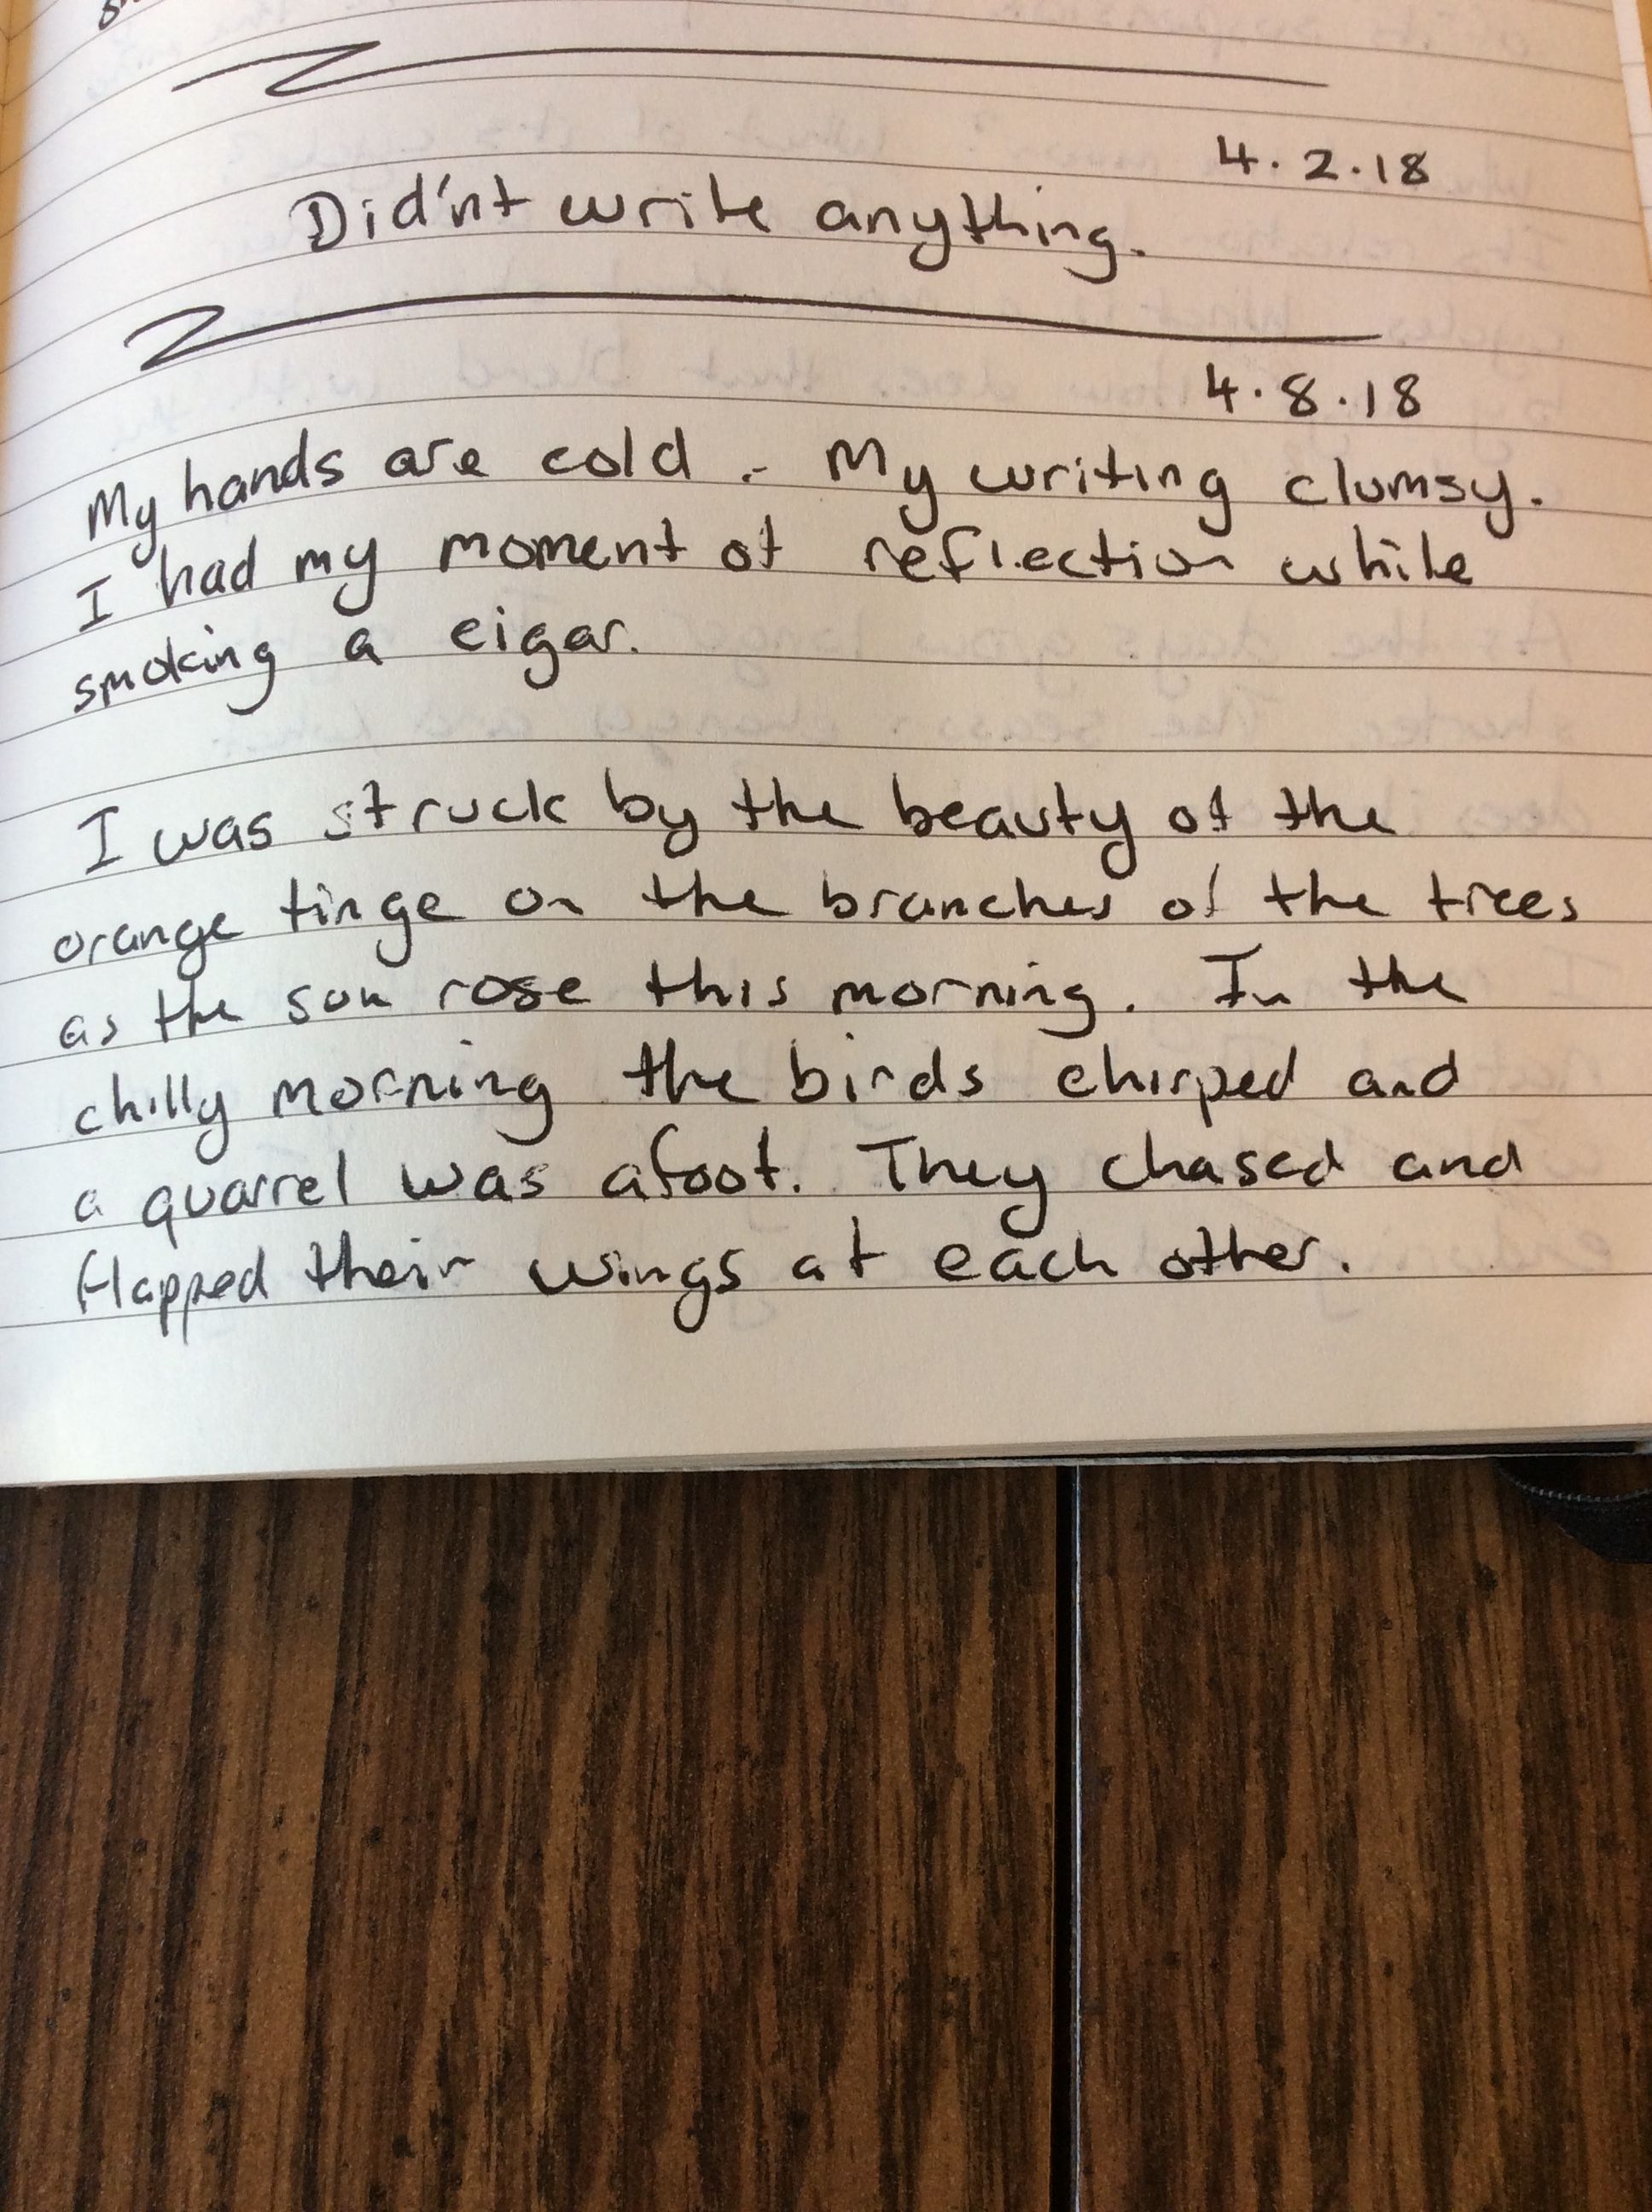 4.2.18
Did'nt write anything.
4.8.18
My hands are cold. - My writing clumsy.
I had my moment of reflection while
smoking a cigar.
I was struck by the beauty of the
orange tinge on the branches of the trees
as the sun rose this morning. In the
chilly morning the birds chirped and
a quarrel was afoot. They chased and
flapped their wings at each other.